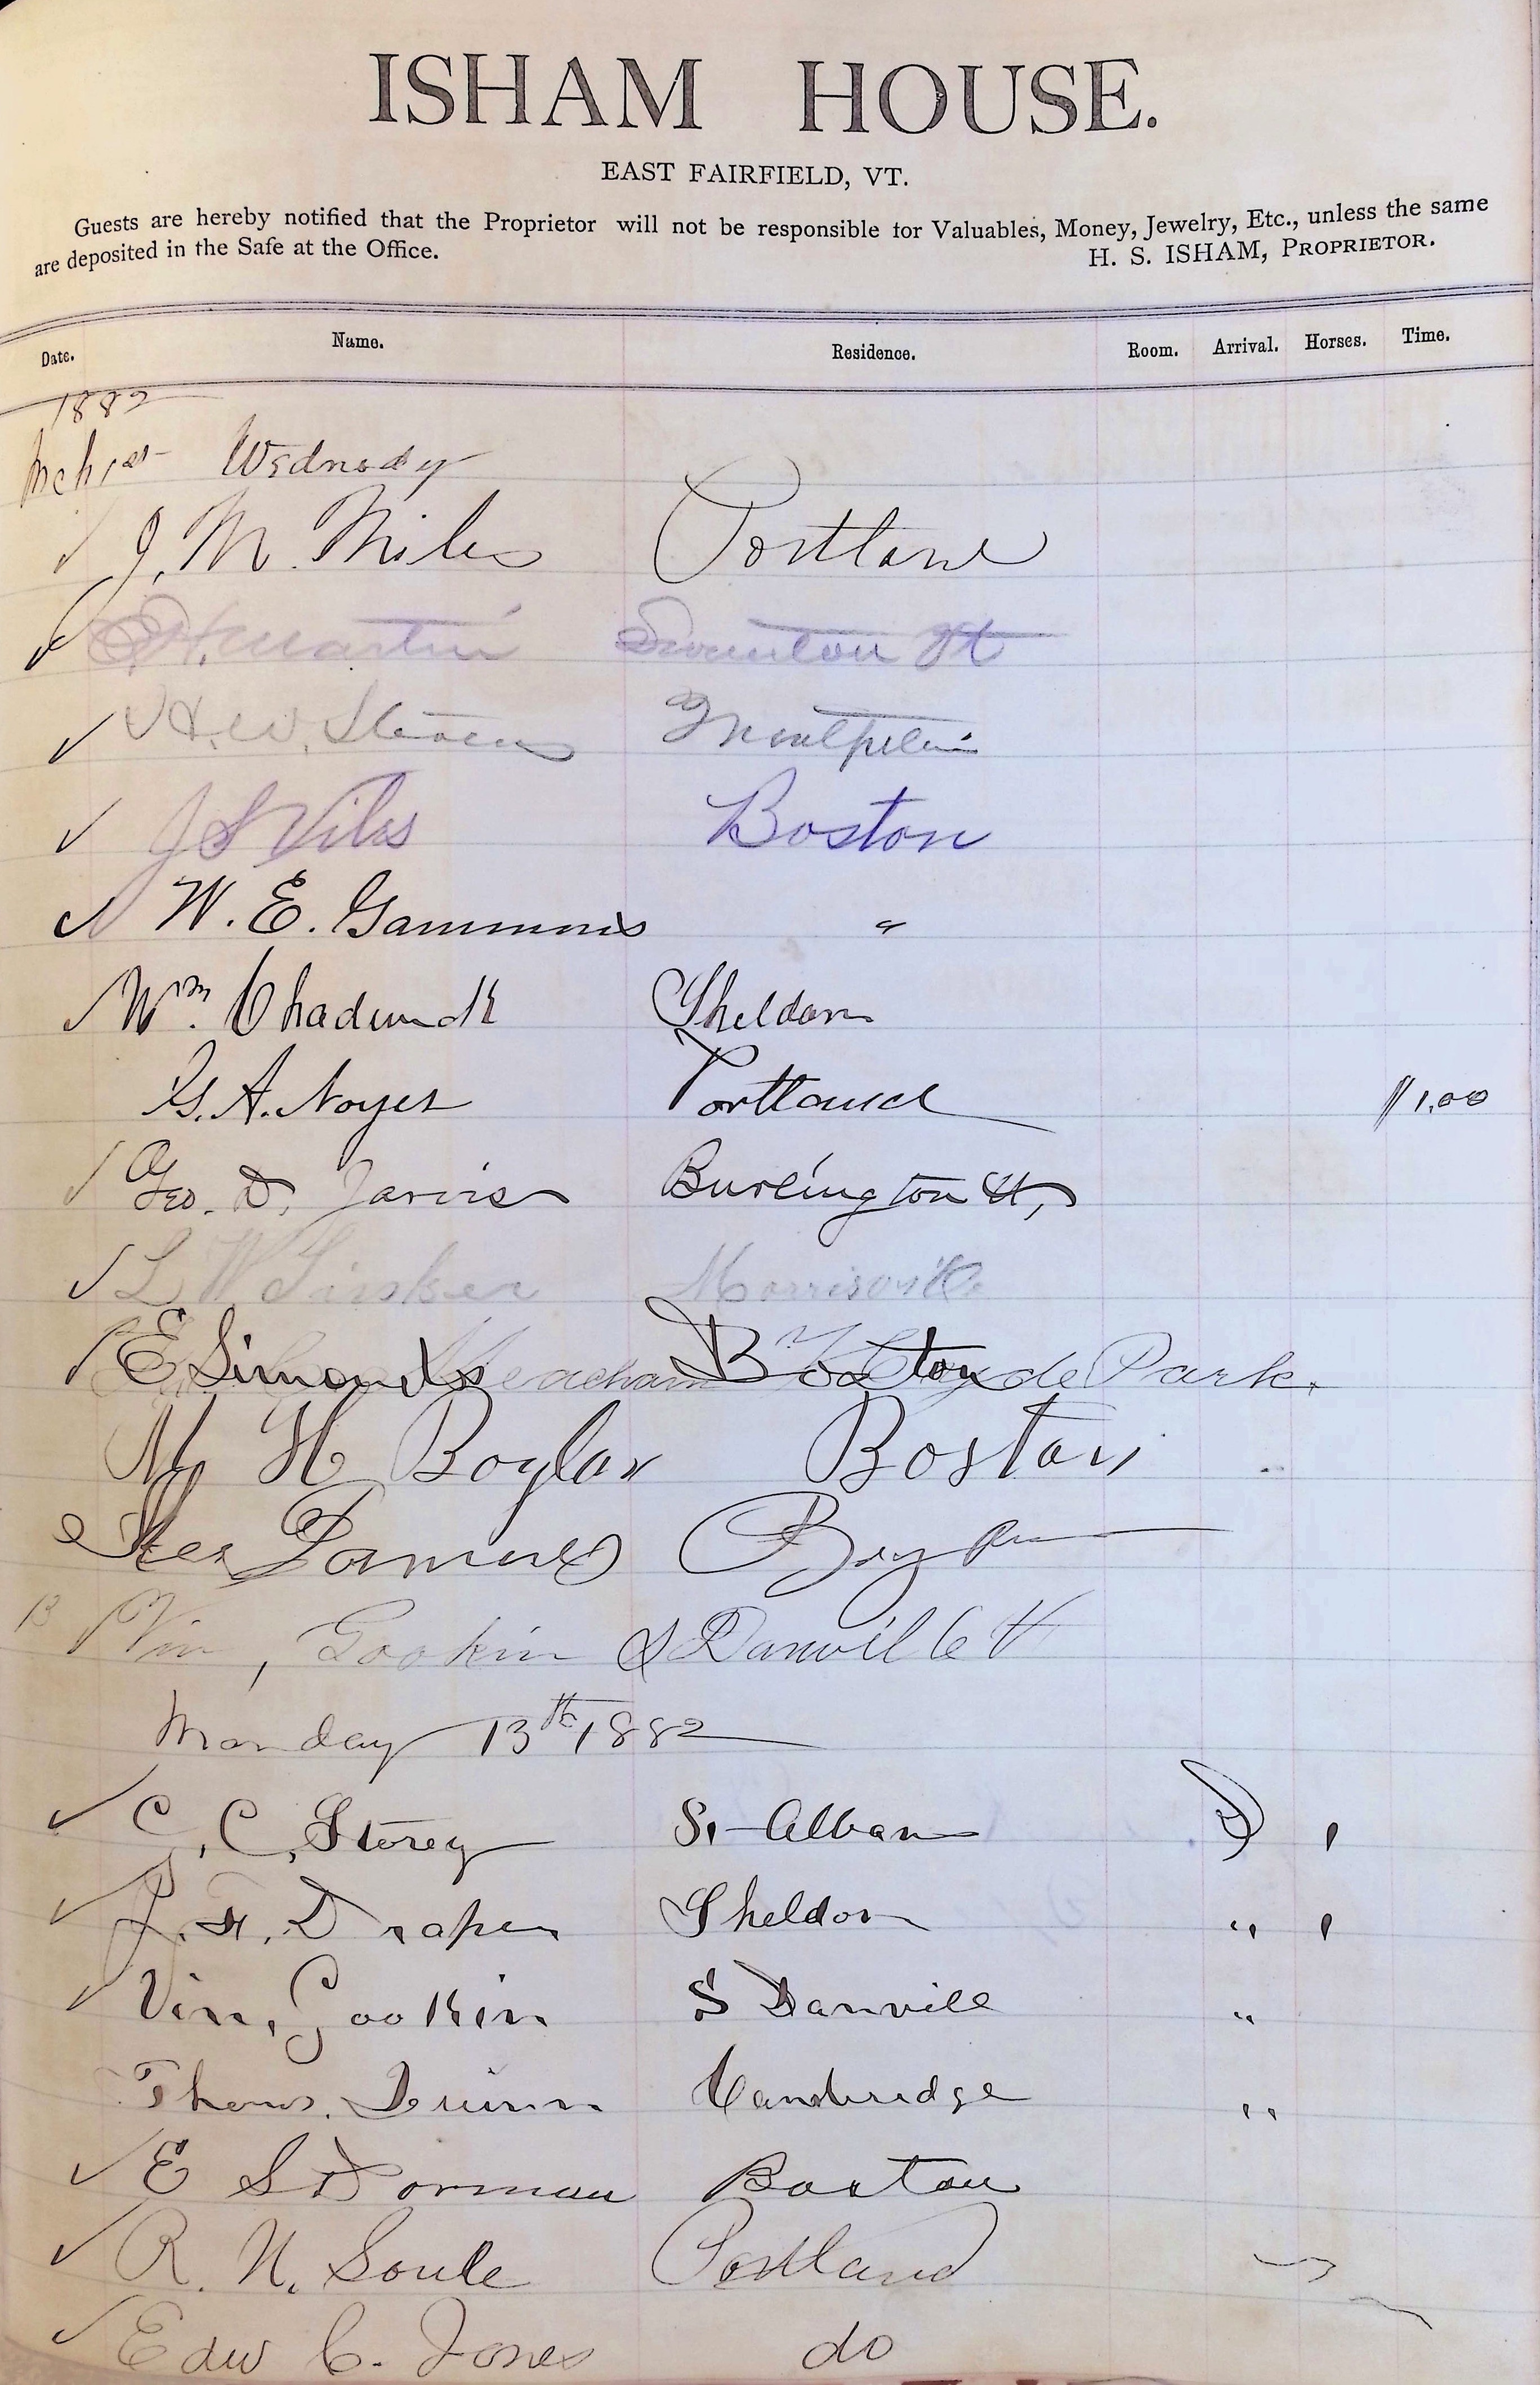 ISHAM HOUSE.
EAST FAIRFIELD, VT.
Guests are hereby notified that the Proprietor will not be responsible for Valuables, Money, Jewelry, Etc., unless the same
are deposited in the Safe at the Office. H. S. ISHAM, PROPRIETOR.
Date. Name. Residence. Room. Arrival. Horses. Time.
1882
Mch 1st Wednesday
J. M. Miles Portland
H. Martin Swanton Vt
H. W. Stevens Montpelier
J S Viles Boston
W. E. Gammons "
Wm. Chadwick Sheldon
G. A. Noyes Portland $1.00
Geo. D. Jarvis Burlington Vt,
L W Boston Morrisville
E Simonds Boston Hyde Park.
M H Boylan Boston
Bryan
13 Vin, Gookin S Danvill Vt
Monday 13th 1882
C. C. Storey St Albans D 1
J. F. Draper Sheldon " 1
Vin, Gookin S Danvill "
Thomas. Quinn Cambridge "
E S Dorman Boston
R. N. Soule Portland
Edw C. Jones do